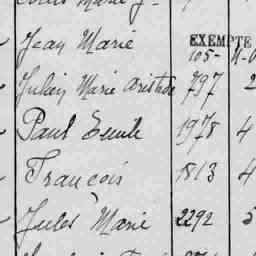 Jean Marie EXEMPTE
105-
Julien Marie Aristide 797 2
Paul Emile 1978 4
François 1813 4
Jules Marie 2292 5